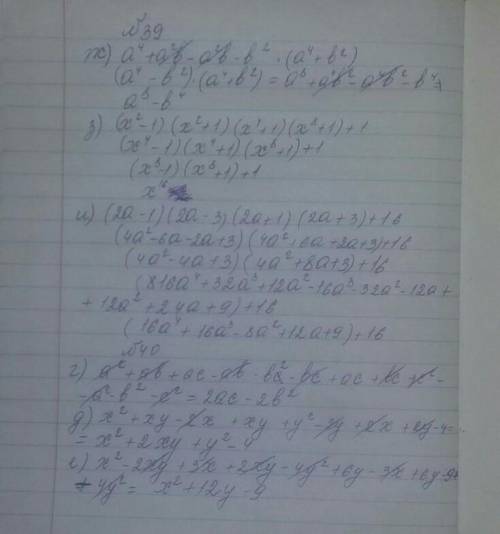 №39
ж) a⁴+a²b-a²b-b²·(a⁴+b²)
(a⁴-b²)·(a⁴+b²)=a⁸+a⁴b²-a⁴b²-b⁴=
a⁸-b⁴
з) (x²-1)(x²+1)(x⁴+1)(x⁸+1)+1
(x⁴-1)(x⁴+1)(x⁸+1)+1
(x⁸-1)(x⁸+1)+1
x¹⁶
и) (2a-1)(2a-3)(2a+1)(2a+3)+16
(4a²-6a-2a+3)(4a²+6a+2a+3)+16
(4a²-4a+3)(4a²+8a+3)+16
(816a⁴+32a³+12a²-16a³-32a²-12a+
+12a²+24a+9)+16
(16a⁴+16a³-8a²+12a+9)+16
№40
г) a²+ab+ac-ab-b²-bc+ac+bc+c²-
-a²-b²-c²=2ac-2b²
д) x²+xy-2x+xy+y²-2y+2x+2y-4=
=x²+2xy+y²-4
е) x²-2xy+3x+2xy-4y²+6y-3x+6y-9+
+4y²= x²+12y-9